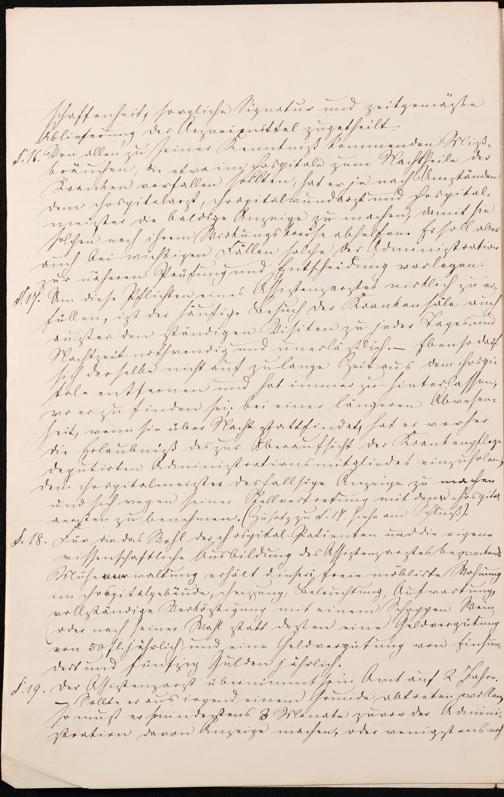 schaffenheit, sorgliche Signatur und zeitgemäße
Ablieferung der Arzneimittel zugetheilt.
§. 16. Von allen zu seiner Kenntniß kommenden Miß-
bräuchen, die etwa im Hospitale zum Nachtheile der
Kranken vorfallen sollten, hat er je nach Umständen
dem Hospitalarzt, Hospitalwundarzt und Hospital-
meister die baldige Anzeige zu machen, damit sie
solchen nach ihrem Wirkungskreise abhelfen. Er soll aber
auch bei wichtigen Fällen solche der Administration
zur näheren Prüfung und Entscheidung vorlegen.
§. 17. Um diese Pflichten eines Assistenzarztes wirklich zu er-
füllen, ist der häufige Besuch der Krankensäle auch
außer den ständigen Visiten zu jeder Tages und
Nachtzeit nothwendig und unerläßlich. – Ebenso darf
sich derselbe nicht auf zu lange Zeit aus dem Hospi-
tale entfernen und hat immer zu hinterlassen,
wo er zu finden sei; bei einer längeren Abwesen-
heit, wenn sie über Nacht stattfindet, hat er vorher
die Erlaubniß des zur Oberaufsicht der Krankenpflege
deputirten Administrationsmitgliedes einzuholen,
dem Hospitalmeister desfallsige Anzeige zu machen
und sich wegen seiner Stellvertretung mit dem Hospital-
arzten zu benehmen. (Zusatz zu §. 17 siehe am Schluß).
§. 18. Für die das Wohl der Hospital-Patienten und die eigene
wissenschaftliche Ausbildung des Assistenzarztes bezweckende
Mühewaltung erhält dieser freie möblirte Wohnung
im Hospitalgebäude, Heizung, Beleuchtung, Aufwartung,
vollständige Verköstigung mit einem Schoppen Wein
(oder nach seiner Wahl statt dessen eine Geldvergütung
von 50 fl. jährlich) und eine Geldvergütung von Einhun-
dert und fünfzig Gulden jährlich.
§. 19. Der Assistenzarzt übernimmt sein Amt auf 2 Jahre.
– Sollte er aus irgend einem Grunde abtreten wollen,
so muß er mindestens 3 Monate zuvor der Admini-
stration davon Anzeige machen, oder wenigstens noch